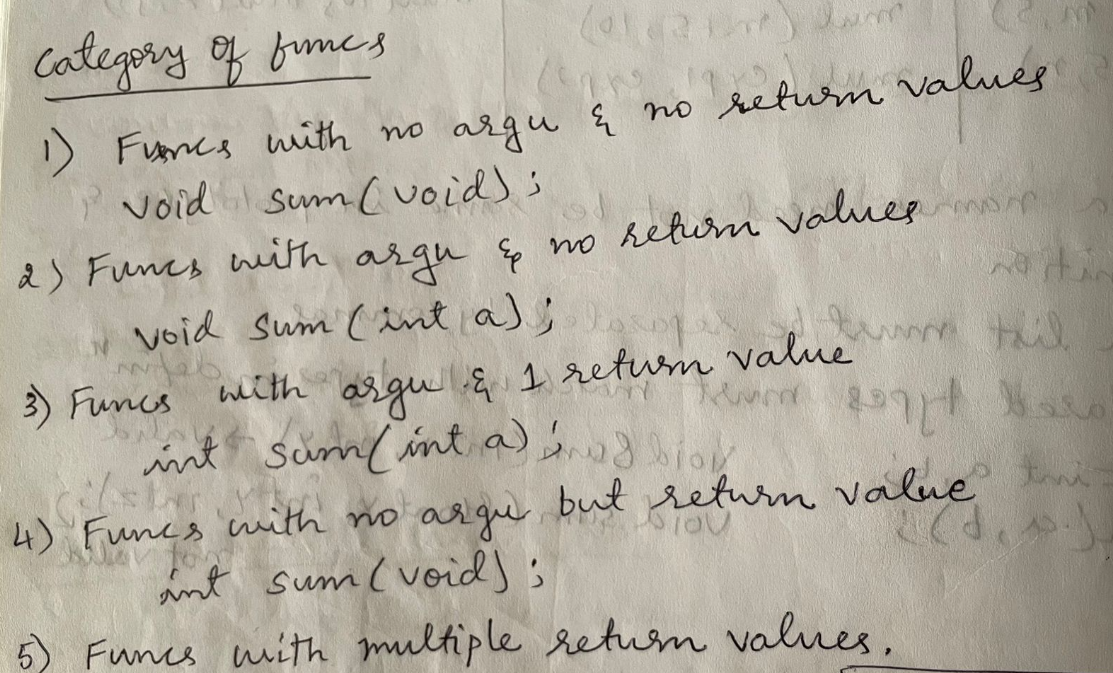 Category of funcs
1) Funcs with no argu & no return values
void sum(void);
2) Funcs with argu & no return values
void sum(int a);
3) Funcs with argu & 1 return value
int sum(int a);
4) Funcs with no argu but return value
int sum(void);
5) Funcs with multiple return values.